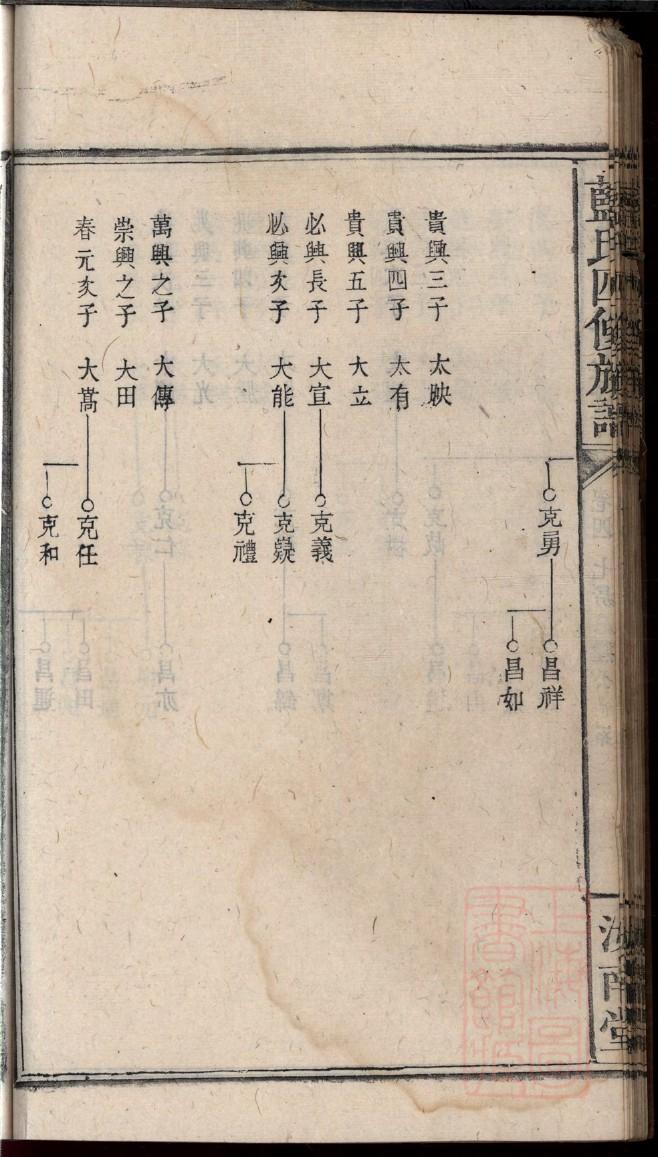 藍氏四修族譜
克勇
昌祥
昌如
貴興三子 太映
貴興四子 太有
貴興五子 大立
必興長子 大宣 克義
必興次子 大能 克嶷
克禮
萬興之子 大傳
崇興之子 大田
春元次子 大嵩 克任
克和
汝南堂